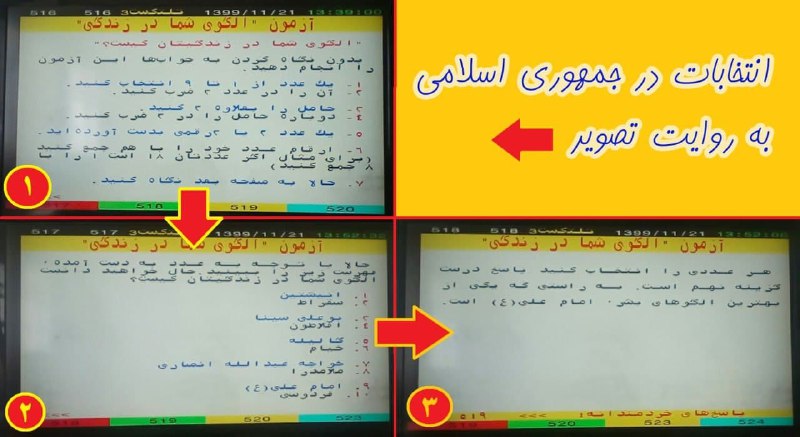 انتخابات در جمهوری اسلامی
به روایت تصویر
516 516 تله‌تکست3 1399/11/21 13:39:00
آزمون "الگوی شما در زندگی"
"الگوی شما در زندگیتان کیست؟"
بدون نگاه کردن به جوابها این آزمون
را انجام دهید.
۱. یک عدد از ۱ تا ۹ انتخاب کنید.
۲. آن را در عدد ۳ ضرب کنید.
۳. حاصل را بعلاوه ۳ کنید.
۴. دوباره حاصل را در ۳ ضرب کنید.
۵. یک عدد ۲ یا ۳رقمی بدست آورده‌اید.
۶. ارقام عدد خود را با هم جمع کنید
(برای مثال اگر عددتان ۱۸ است ۱ را با
۸ جمع کنید)
۷. حالا به صفحه بعد نگاه کنید.
<<
517 518 519 520
۱
517 517 تله‌تکست3 1399/11/21 13:52:32
آزمون "الگوی شما در زندگی"
حالا با توجه به عدد به دست آمده،
فهرست زیر را ببینید.حال خواهید دانست
الگوی شما در زندگیتان کیست؟
۱. انیشتین
۲. سقراط
۳. بوعلی سینا
۴. افلاطون
۵. گالیله
۶. خیام
۷. خواجه عبدالله انصاری
۸. ملاصدرا
۹. امام علی(ع)
۱۰. فردوسی
<<
518 519 520 523
۲
518 518 تله‌تکست3 1399/11/21 13:52:56
آزمون "الگوی شما در زندگی"
هر عددی را انتخاب کنید پاسخ درست
گزینه نهم است. به راستی که یکی از
بهترین الگوهای بشر، امام علی(ع) است.
پاسخ‌های خردمندانه: >>> ۵۱۹
519 520 523 524
۳